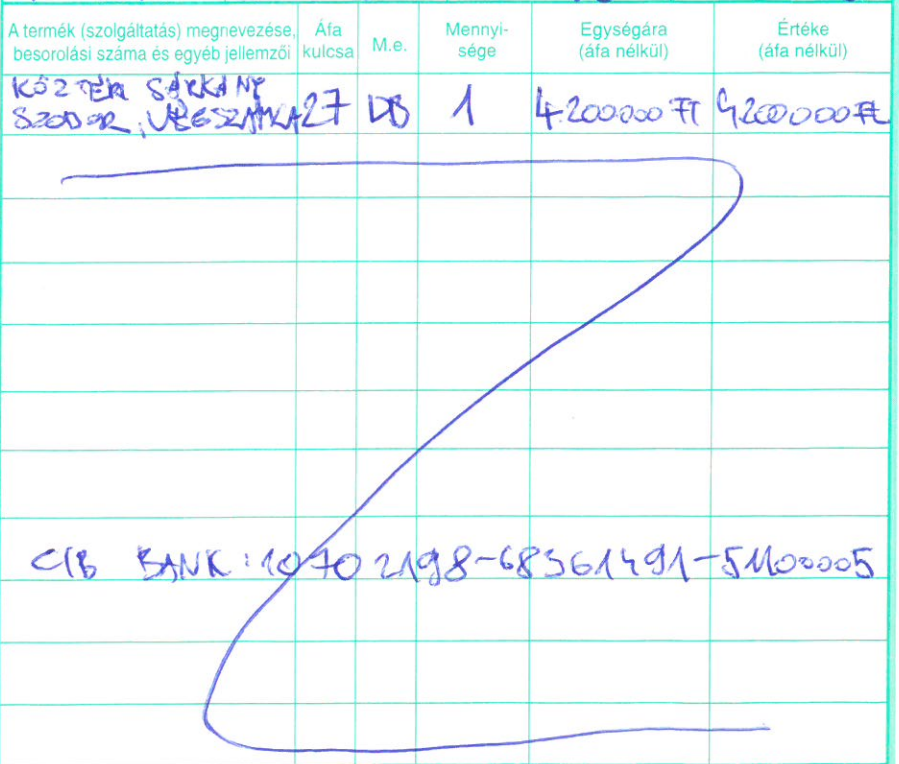 A termék (szolgáltatás) megnevezése, besorolási száma és egyéb jellemzői
Áfa kulcsa
M.e.
Mennyi-sége
Egységára (áfa nélkül)
Értéke (áfa nélkül)
KÖZTÉRI SÁRKÁNY
SZOBOR, VÉGSZÁMLA 27 DB 1 4.200000 Ft 4200000 Ft
CIB BANK: 10702198-68361491-51100005